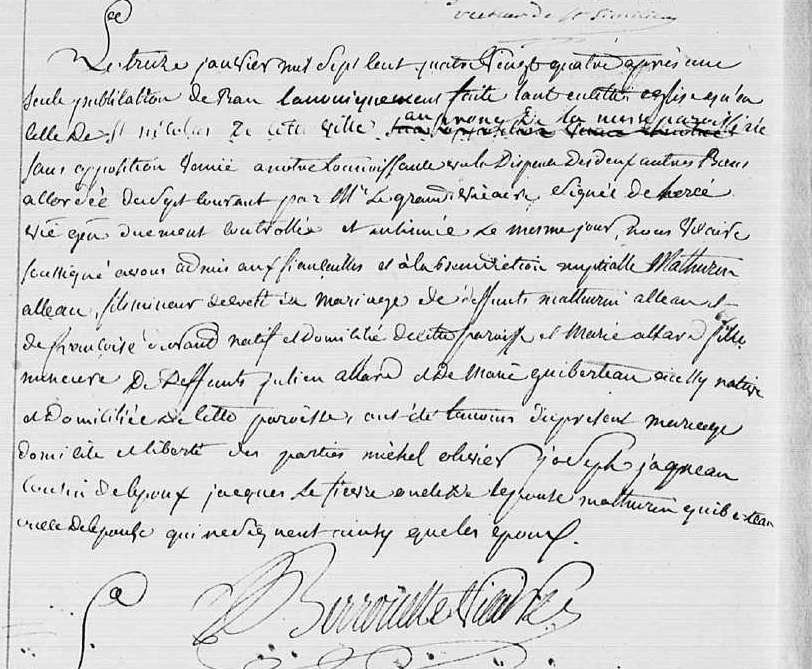 vicaire de St Similien
Le treize janvier mil sept cent quatre vingt quatre après une
seule publication de Ban canoniquement faite tant en cette eglise qu'en
celle de St nicolas de cette ville au prone de la messe paroissiale
sans opposition venue a notre connoissance vu la Dispense Des deux autres Bans
accordée du sept courant par Mr Le grand vicaire, Signée de hercé
vic gén duement controllée et insinuée Le meme jour, nous vicaire
soussigné avons admis aux fiancailles et à la benediction nuptialle Mathurin
alleau, fils mineur du mariage de deffunts mathurin alleau et
de françoise durand natif et domicilié de cette paroisse et Marie allard fille
mineure De Deffunts julien allard et De Marie guiberteau native
et Domiciliée De cette paroisse, ont été temoins du present mariage
domicile et liberté des parties michel olivier joseph jagneau
cousin de lepoux jacques oncle De lepouse mathurin guiberteau
oncle De lepouse qui ne signent ainsy que les epoux.